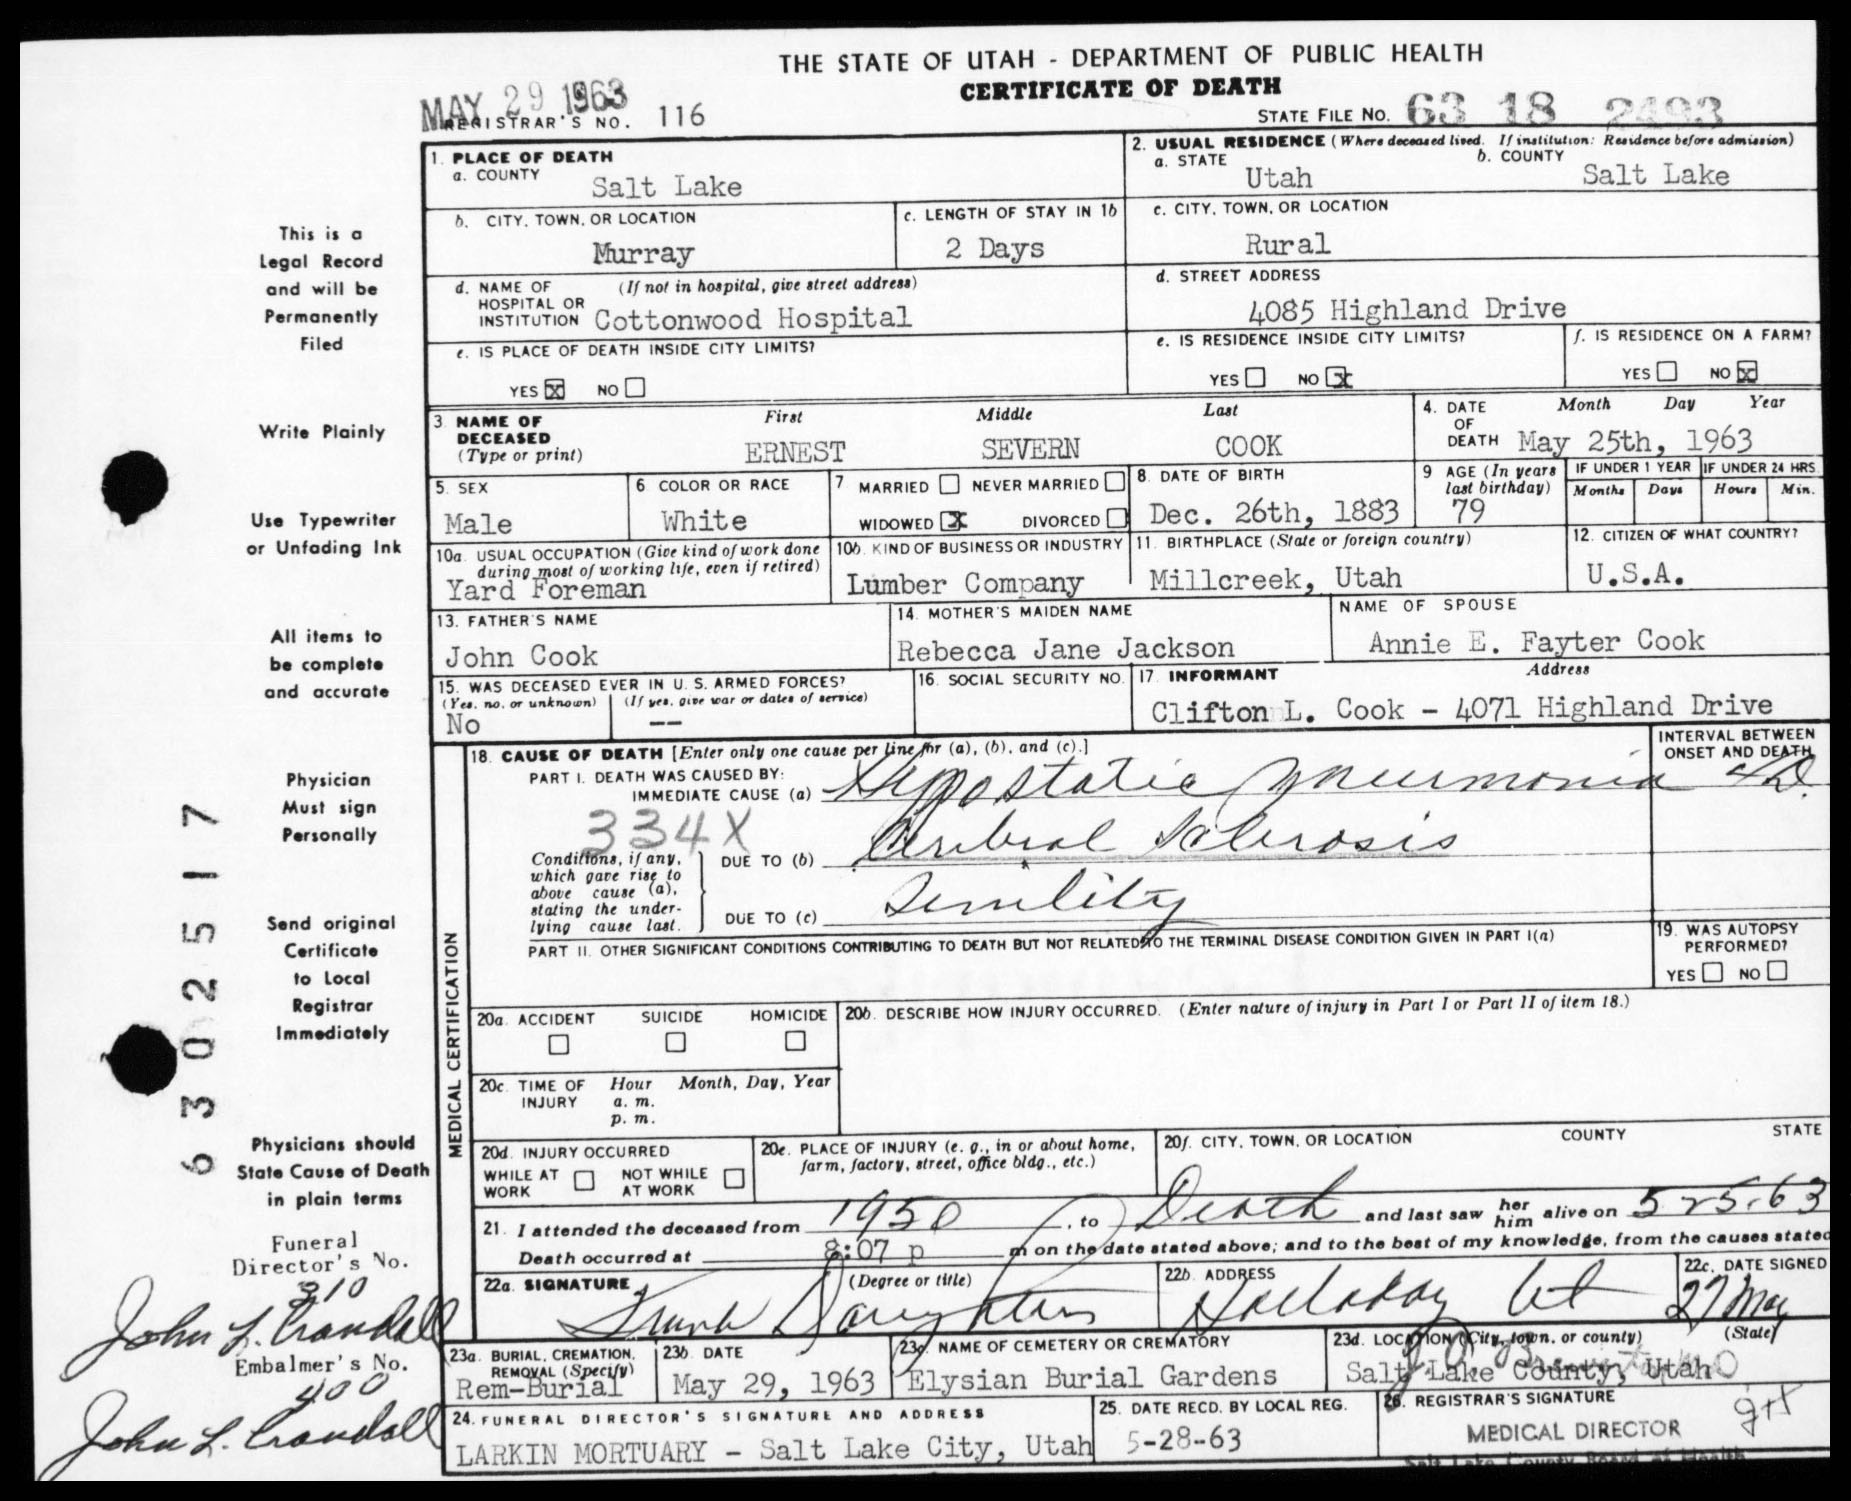 THE STATE OF UTAH - DEPARTMENT OF PUBLIC HEALTH
CERTIFICATE OF DEATH
MAY 29 1963
REGISTRAR'S NO. 116
STATE FILE NO. 63 18 2493
1. PLACE OF DEATH
a. COUNTY Salt Lake
2. USUAL RESIDENCE (Where deceased lived. If institution: Residence before admission)
a. STATE Utah b. COUNTY Salt Lake
b. CITY, TOWN, OR LOCATION Murray
c. LENGTH OF STAY IN 1b 2 Days
c. CITY, TOWN, OR LOCATION Rural
d. NAME OF HOSPITAL OR INSTITUTION (If not in hospital, give street address) Cottonwood Hospital
d. STREET ADDRESS 4085 Highland Drive
e. IS PLACE OF DEATH INSIDE CITY LIMITS?
YES X NO
e. IS RESIDENCE INSIDE CITY LIMITS?
YES NO X
f. IS RESIDENCE ON A FARM?
YES NO X
3. NAME OF DECEASED (Type or print)
First Middle Last
ERNEST SEVERN COOK
4. DATE OF DEATH Month Day Year
May 25th, 1963
5. SEX Male
6. COLOR OR RACE White
7 MARRIED NEVER MARRIED
WIDOWED X DIVORCED
8. DATE OF BIRTH Dec. 26th, 1883
9 AGE (In years last birthday) 79
IF UNDER 1 YEAR Months Days
IF UNDER 24 HRS. Hours Min.
10a. USUAL OCCUPATION (Give kind of work done during most of working life, even if retired)
Yard Foreman
10b. KIND OF BUSINESS OR INDUSTRY
Lumber Company
11. BIRTHPLACE (State or foreign country)
Millcreek, Utah
12. CITIZEN OF WHAT COUNTRY?
U.S.A.
13. FATHER'S NAME
John Cook
14. MOTHER'S MAIDEN NAME
Rebecca Jane Jackson
NAME OF SPOUSE
Annie E. Fayter Cook
15. WAS DECEASED EVER IN U. S. ARMED FORCES?
(Yes, no, or unknown) (If yes, give war or dates of service)
No --
16. SOCIAL SECURITY NO.
17. INFORMANT Address
Clifton L. Cook - 4071 Highland Drive
MEDICAL CERTIFICATION
18. CAUSE OF DEATH [Enter only one cause per line for (a), (b), and (c).]
INTERVAL BETWEEN ONSET AND DEATH
PART I. DEATH WAS CAUSED BY:
IMMEDIATE CAUSE (a) Hypostatic Pneumonia
334X
Conditions, if any, which gave rise to above cause (a), stating the underlying cause last.
DUE TO (b) Cerebral Sclerosis
DUE TO (c) Senility
PART II. OTHER SIGNIFICANT CONDITIONS CONTRIBUTING TO DEATH BUT NOT RELATED TO THE TERMINAL DISEASE CONDITION GIVEN IN PART I(a)
19. WAS AUTOPSY PERFORMED?
YES NO
20a. ACCIDENT SUICIDE HOMICIDE
20b. DESCRIBE HOW INJURY OCCURRED. (Enter nature of injury in Part I or Part II of item 18.)
20c. TIME OF INJURY Hour Month, Day, Year
a. m.
p. m.
20d. INJURY OCCURRED
WHILE AT WORK NOT WHILE AT WORK
20e. PLACE OF INJURY (e. g., in or about home, farm, factory, street, office bldg., etc.)
20f. CITY, TOWN, OR LOCATION COUNTY STATE
21. I attended the deceased from 1950, to Death and last saw her him alive on 5-25-63
Death occurred at 8:07 p m on the date stated above; and to the best of my knowledge, from the causes stated
22a. SIGNATURE (Degree or title)
22b. ADDRESS
Holladay Ut
22c. DATE SIGNED
27 May
23a. BURIAL, CREMATION, REMOVAL (Specify)
Rem-Burial
23b. DATE
May 29, 1963
23c. NAME OF CEMETERY OR CREMATORY
Elysian Burial Gardens
23d. LOCATION (City, town, or county) (State)
Salt Lake County, Utah
24. FUNERAL DIRECTOR'S SIGNATURE AND ADDRESS
LARKIN MORTUARY - Salt Lake City, Utah
25. DATE RECD. BY LOCAL REG.
5-28-63
26. REGISTRAR'S SIGNATURE
MEDICAL DIRECTOR
Salt Lake County Board of Health
This is a
Legal Record
and will be
Permanently
Filed
Write Plainly
Use Typewriter
or Unfading Ink
All items to
be complete
and accurate
Physician
Must sign
Personally
Send original
Certificate
to Local
Registrar
Immediately
Physicians should
State Cause of Death
in plain terms
Funeral
Director's No.
310
John L. Crandall
Embalmer's No.
400
John L. Crandall
63 02517